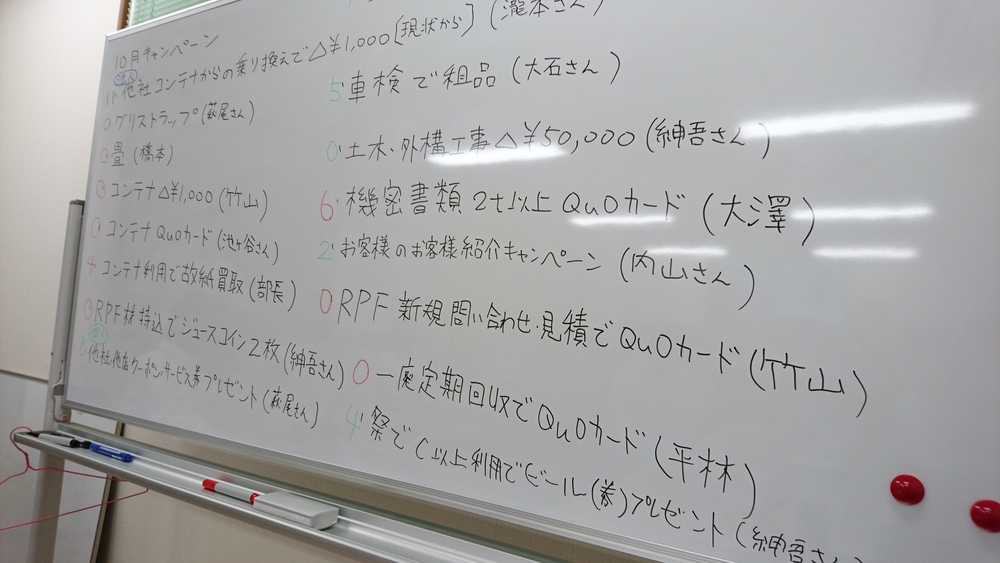 10月キャンペーン
他社コンテナからの乗り換えで△¥1,000[現状から](瀧本さん)
0 グリストラップ(萩尾さん)
0 畳(橋本)
コンテナ△¥1,000(竹山)
コンテナQuOカード(池ヶ谷さん)
4 コンテナ利用で故紙買取(部長)
RPF材持込でジュースコイン2枚(紳吾さん)
他社・他店クーポン・サービス券プレゼント(萩尾さん)
5 車検で粗品(大石さん)
0 土木、外構工事△¥50,000(紳吾さん)
6 機密書類2t以上QuOカード(大澤)
2 お客様のお客様紹介キャンペーン(内山さん)
0 RPF新規問い合わせ・見積でQuOカード(竹山)
0 一廃定期回収でQuOカード(平林)
4 祭でC以上利用でビール(券)プレゼント(紳吾さん